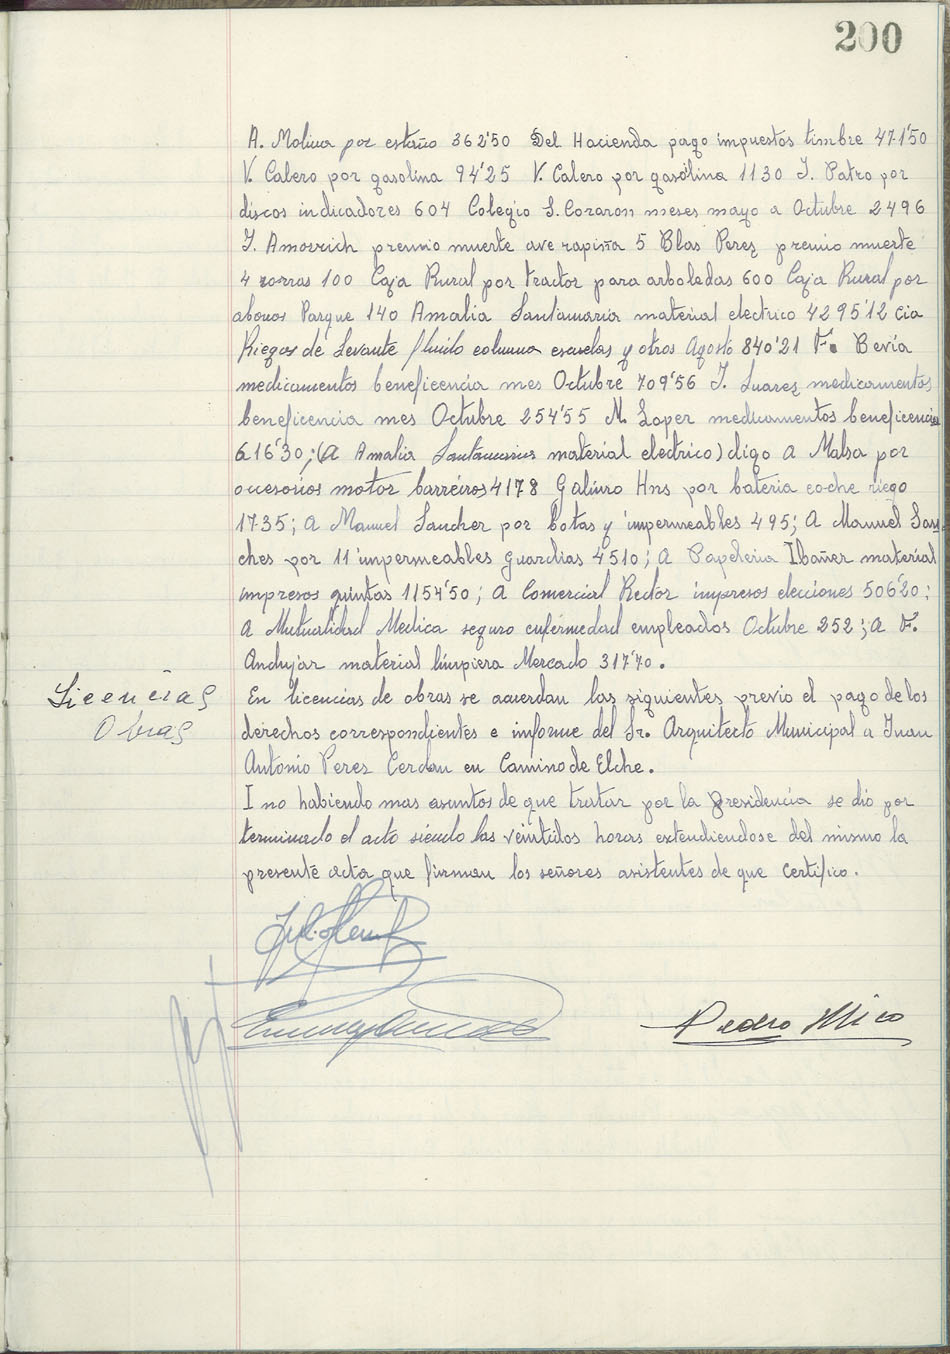 200
A. Molina por estaño 362'50 Del Hacienda pago impuestos timbre 471'50
V. Calero por gasolina 94'25 V. Calero por gasolina 1130 J. Patro por
discos indicadores 604 Colegio S. Corazon meses mayo a Octubre 2496
J. Amorrich premio muerte ave rapiña 5 Blas Perez premio muerte
4 zorras 100 Caja Rural por tractor para arboledas 600 Caja Rural por
abonos Parque 140 Amalia Santamaria material electrico 4295'12 Cia
Riegos de Levante fluido columna escuelas y otros Agosto 840'21 F. Bevia
medicamentos beneficencia mes Octubre 709'56 J. Suarez medicamentos
beneficencia mes Octubre 254'55 M. Loper medicamentos beneficencia
616'30; (A Amalia Santamaria material electrico) digo A Malsa por
accesorios motor barreiros 4178 Galiuro Hns por bateria coche riego
1735; A Manuel Sancher por botas y impermeables 495; A Manuel San
ches por 11 impermeables guardias 4510; A Papeleria Ibañer material
impresos quintas 1154'50; A Comercial Rector impresos elecciones 506'20;
A Mutualidad Medica seguro enfermedad empleados Octubre 252; A F.
Andujar material limpiera Mercado 317'70.
Licencias
Obras
En licencias de obras se acuerdan las siguientes previo el pago de los
derechos correspondientes e informe del Sr. Arquitecto Municipal a Juan
Antonio Perez Cerdan en Camino de Elche.
I no habiendo mas asuntos de que tratar por la Presidencia se dió por
terminado el acto siendo las veintidos horas extendiendose del mismo la
presente acta que firman los señores asistentes de que certifico.
Pedro Mico